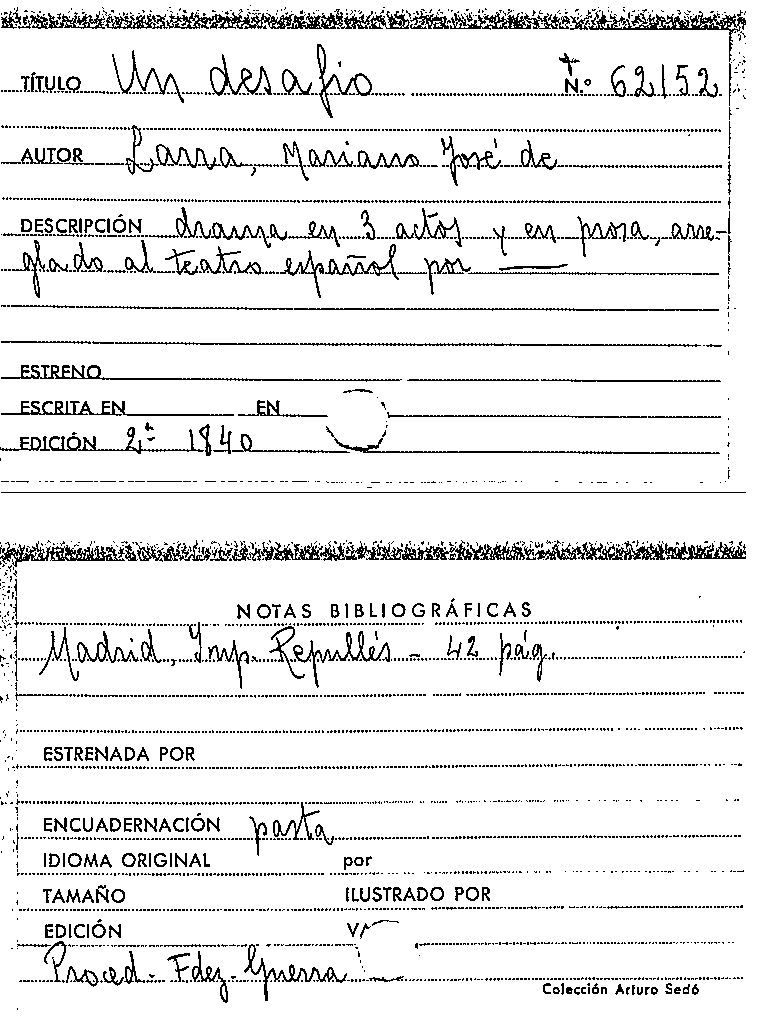 TÍTULO Un desafio N.º 62152
AUTOR Larra, Mariano José de
DESCRIPCIÓN drama en 3 actos y en prosa, arre-
glado al teatro español por ——
ESTRENO
ESCRITA EN EN
EDICIÓN 2ª 1840
NOTAS BIBLIOGRÁFICAS
Madrid, Imp. Repullés - 42 pág.
ESTRENADA POR
ENCUADERNACIÓN pasta
IDIOMA ORIGINAL por
TAMAÑO ILUSTRADO POR
EDICIÓN
Proced. Fdez-Guerra
Colección Arturo Sedó